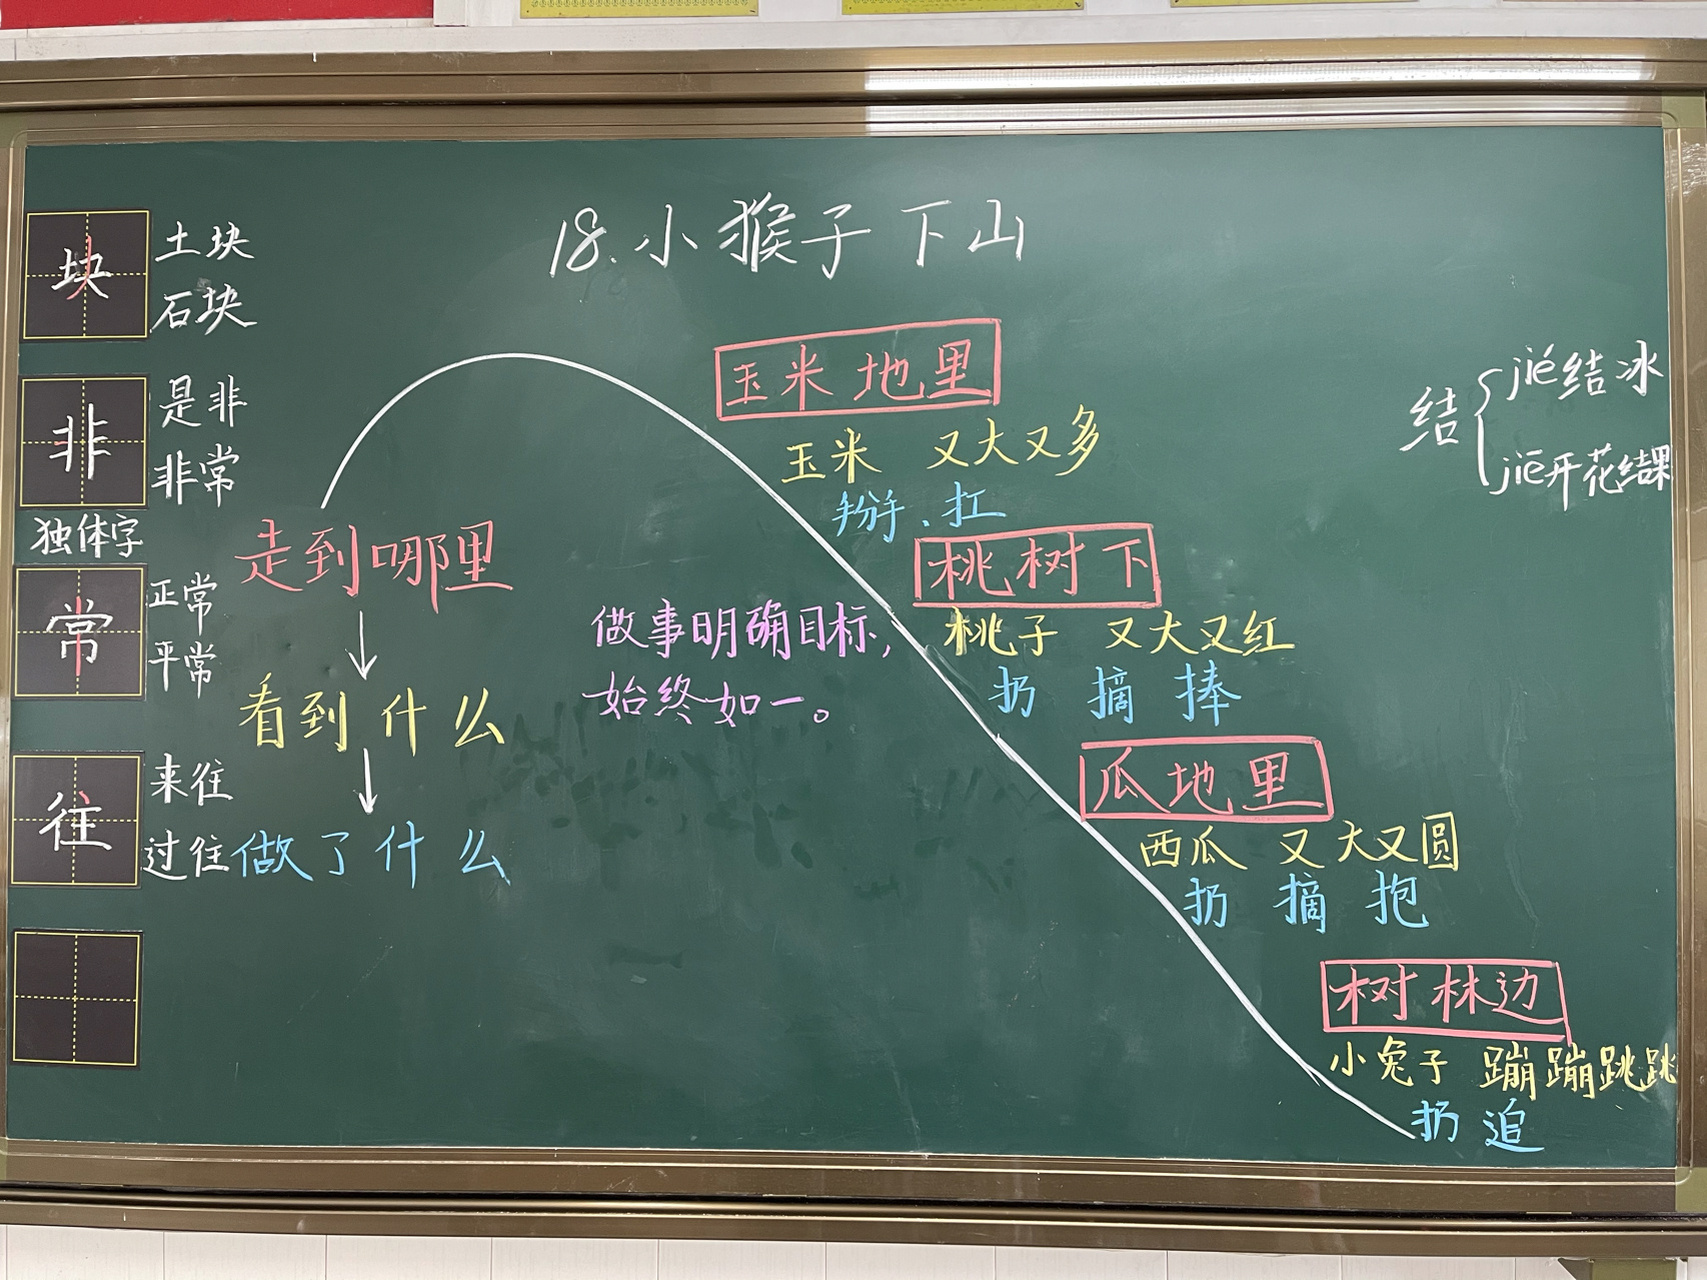 18.小猴子下山
块
土块
石块
非
是非
非常
独体字
常
正常
平常
往
来往
过往
走到哪里
看到什么
做了什么
做事明确目标,
始终如一。
玉米地里
玉米 又大又多
掰、扛
桃树下
桃子 又大又红
扔 摘 捧
瓜地里
西瓜 又大又圆
扔 摘 抱
树林边
小兔子 蹦蹦跳跳
扔 追
结
jié结冰
jiē开花结果